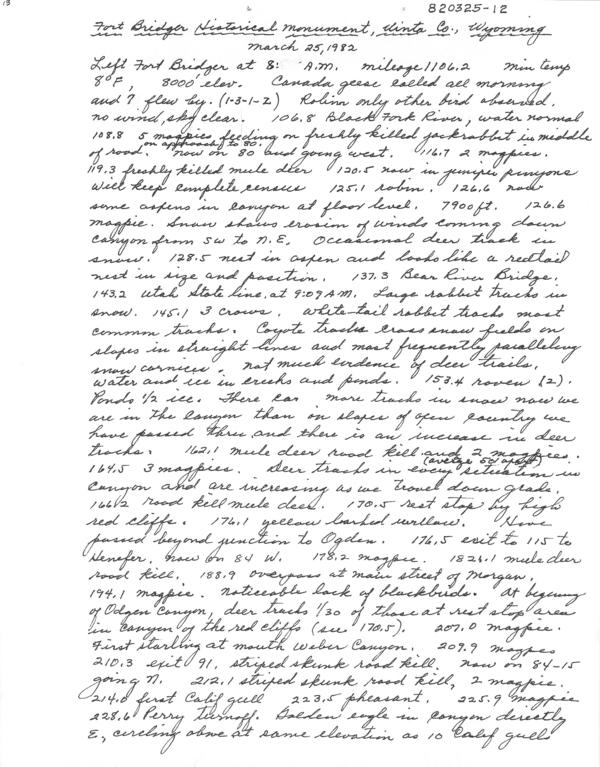 13
820325-12
Fort Bridger Historical Monument, Uinta Co., Wyoming
March 25, 1982
Left Fort Bridger at 8: A.M. mileage 1106.2 min temp
8°F, 8000 elev. Canada geese called all morning
and 7 flew by. (1-3-1-2) Robin only other bird observed.
no wind, sky clear. 106.8 Black Fork River, water normal
108.8 5 magpies feeding on freshly killed jackrabbit in middle
on approach to 80.
of road. now on 80 and going west. 116.7 2 magpies.
119.3 freshly killed mule deer 120.5 now in juniper pinyons
will keep complete census 125.1 robin. 126.6 now
some aspens in canyon at floor level. 7900 ft. 126.6
magpie. Snow shows erosion of winds coming down
canyon from SW to N.E. Occasional deer track in
snow. 128.5 nest in aspen and looks like a redtail
nest in size and position. 137.3 Bear River Bridge.
143.2 Utah State line, at 9:09 A.M. Large rabbit tracks in
snow. 145.1 3 crows. White-tail rabbit tracks most
common tracks. Coyote tracks cross snow fields on
slopes in straight lines and most frequently paralleling
snow cornices. not much evidence of deer trails.
Water and ice in creeks and ponds. 153.4 raven (2).
Ponds 1/2 ice. There are more tracks in snow now we
are in the canyon than on slopes of open country we
have passed thru and there is an increase in deer
tracks. 162.1 mule deer road kill and 2 magpies.
164.5 3 magpies. Deer tracks in every situation in
canyon and are increasing as we travel down grade.
166.2 road kill mule deer. 170.5 rest stop by high
red cliffs. 176.1 yellow barked willow. Have
passed beyond junction to Ogden. 176.5 exit to 115 to
Henefer. now on 84 W. 178.2 magpie. 182.1 mule deer
road kill. 188.9 overpass at main street of Morgan.
194.1 magpie. noticeable lack of blackbirds. At beginning
of Odgen Canyon, deer tracks 1/30 of those at rest stop area
in canyon of the red cliffs (see 170.5). 207.0 magpie.
First starling at mouth Weber Canyon. 209.9 magpies
210.3 exit 91, striped skunk road kill. now on 84-15
going N. 212.1 striped skunk road kill, 2 magpie.
214.0 first Calif gull 223.5 pheasant. 225.9 magpie
228.6 Perry turnoff. Golden eagle in canyon directly
E, circling above at same elevation as 10 Calif gulls